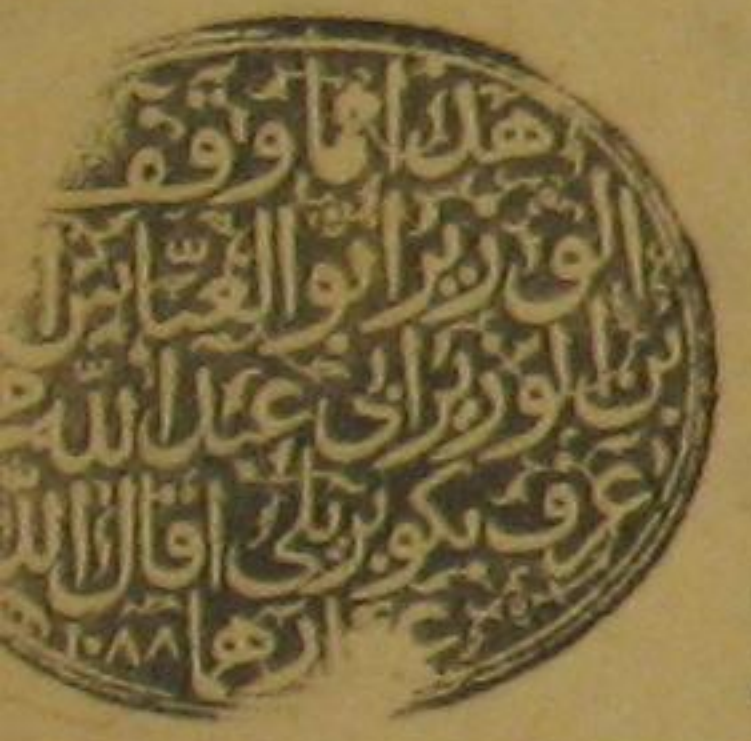 هذا مما وقف
الوزير ابو العباس
بن الوزير ابي عبد الله
عرف بكوبريلي اقال الله
١٠٨٨